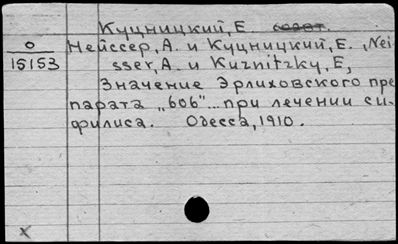 Куцницкий, Е.
О
15153
Нейссер, А. и Куцницкий, Е. Nei-
sser, A. и Kuznitzky, E,
Значение Эрлиховского пре
парата „606"... при лечении си-
филиса. Одесса, 1910.
x